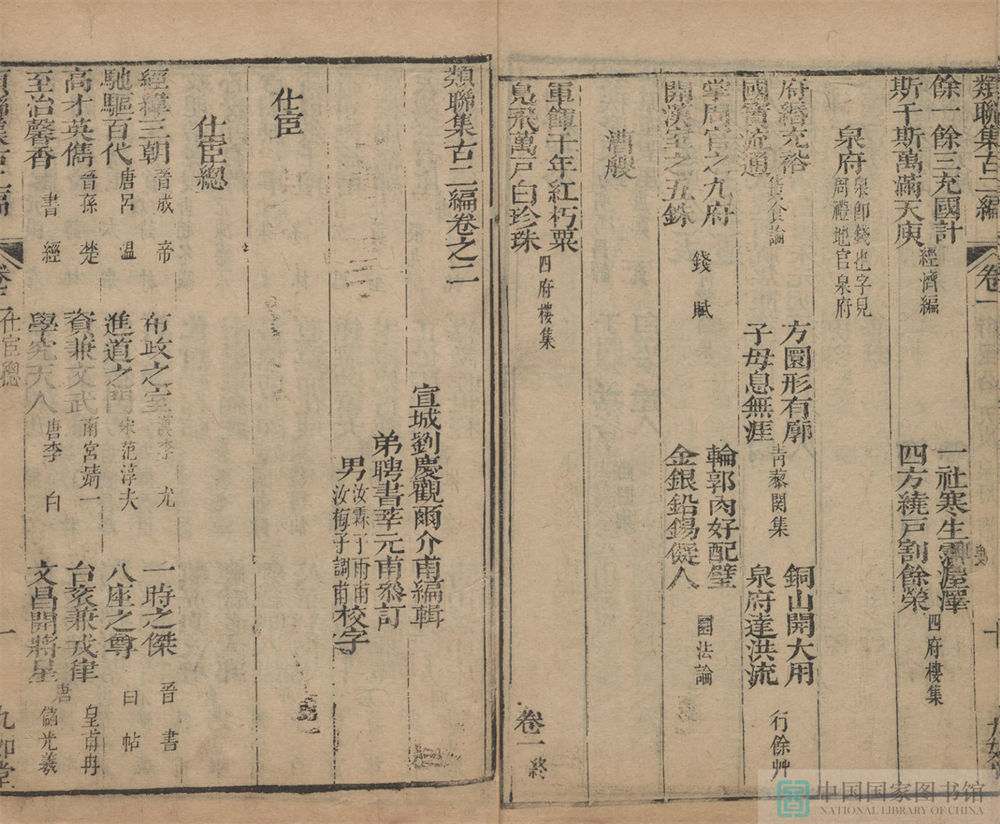 類聯集古二編
卷一
餘一餘三充國計
斯千斯萬滿天庾 經濟編
一社寒生霑渥澤
四方繞戶割餘榮 四府樓集
泉府 泉卽錢也字見周禮地官泉府
府緡充裕
國寶流通 貨食論
方圜形有廓
子母息無涯 青藜閣集
銅山開大用
泉府達洪流 行餘艸
掌周官之九府
開漢室之五銖 錢賦
輪郭肉好配璧
金銀鉛錫儗人 圜法論
漕艘
軍餫千年紅朽粟
鳧飛萬戶白珍珠 四府樓集
卷一終
類聯集古二編卷之二
宣城劉慶觀爾介甫編輯
弟聘書莘元甫叅訂
男汝霖丁雨甫汝梅子調甫校字
仕宦
仕宦總
經緯三朝 晉成帝
馳驅百代 唐呂溫
高才英儁 晉孫楚
至治馨香 書經
布政之室 漢李尤
進道之門 宋范淳夫
資兼文武 南宮靖一
學究天人 唐李白
一時之傑 晉書
八座之尊 曰帖
台袞兼戎律 唐皇甫冉
文昌開將星 儲光羲
類聯集古二編
卷二
仕宦總
一
九如堂
中国国家图书馆
NATIONAL LIBRARY OF CHINA